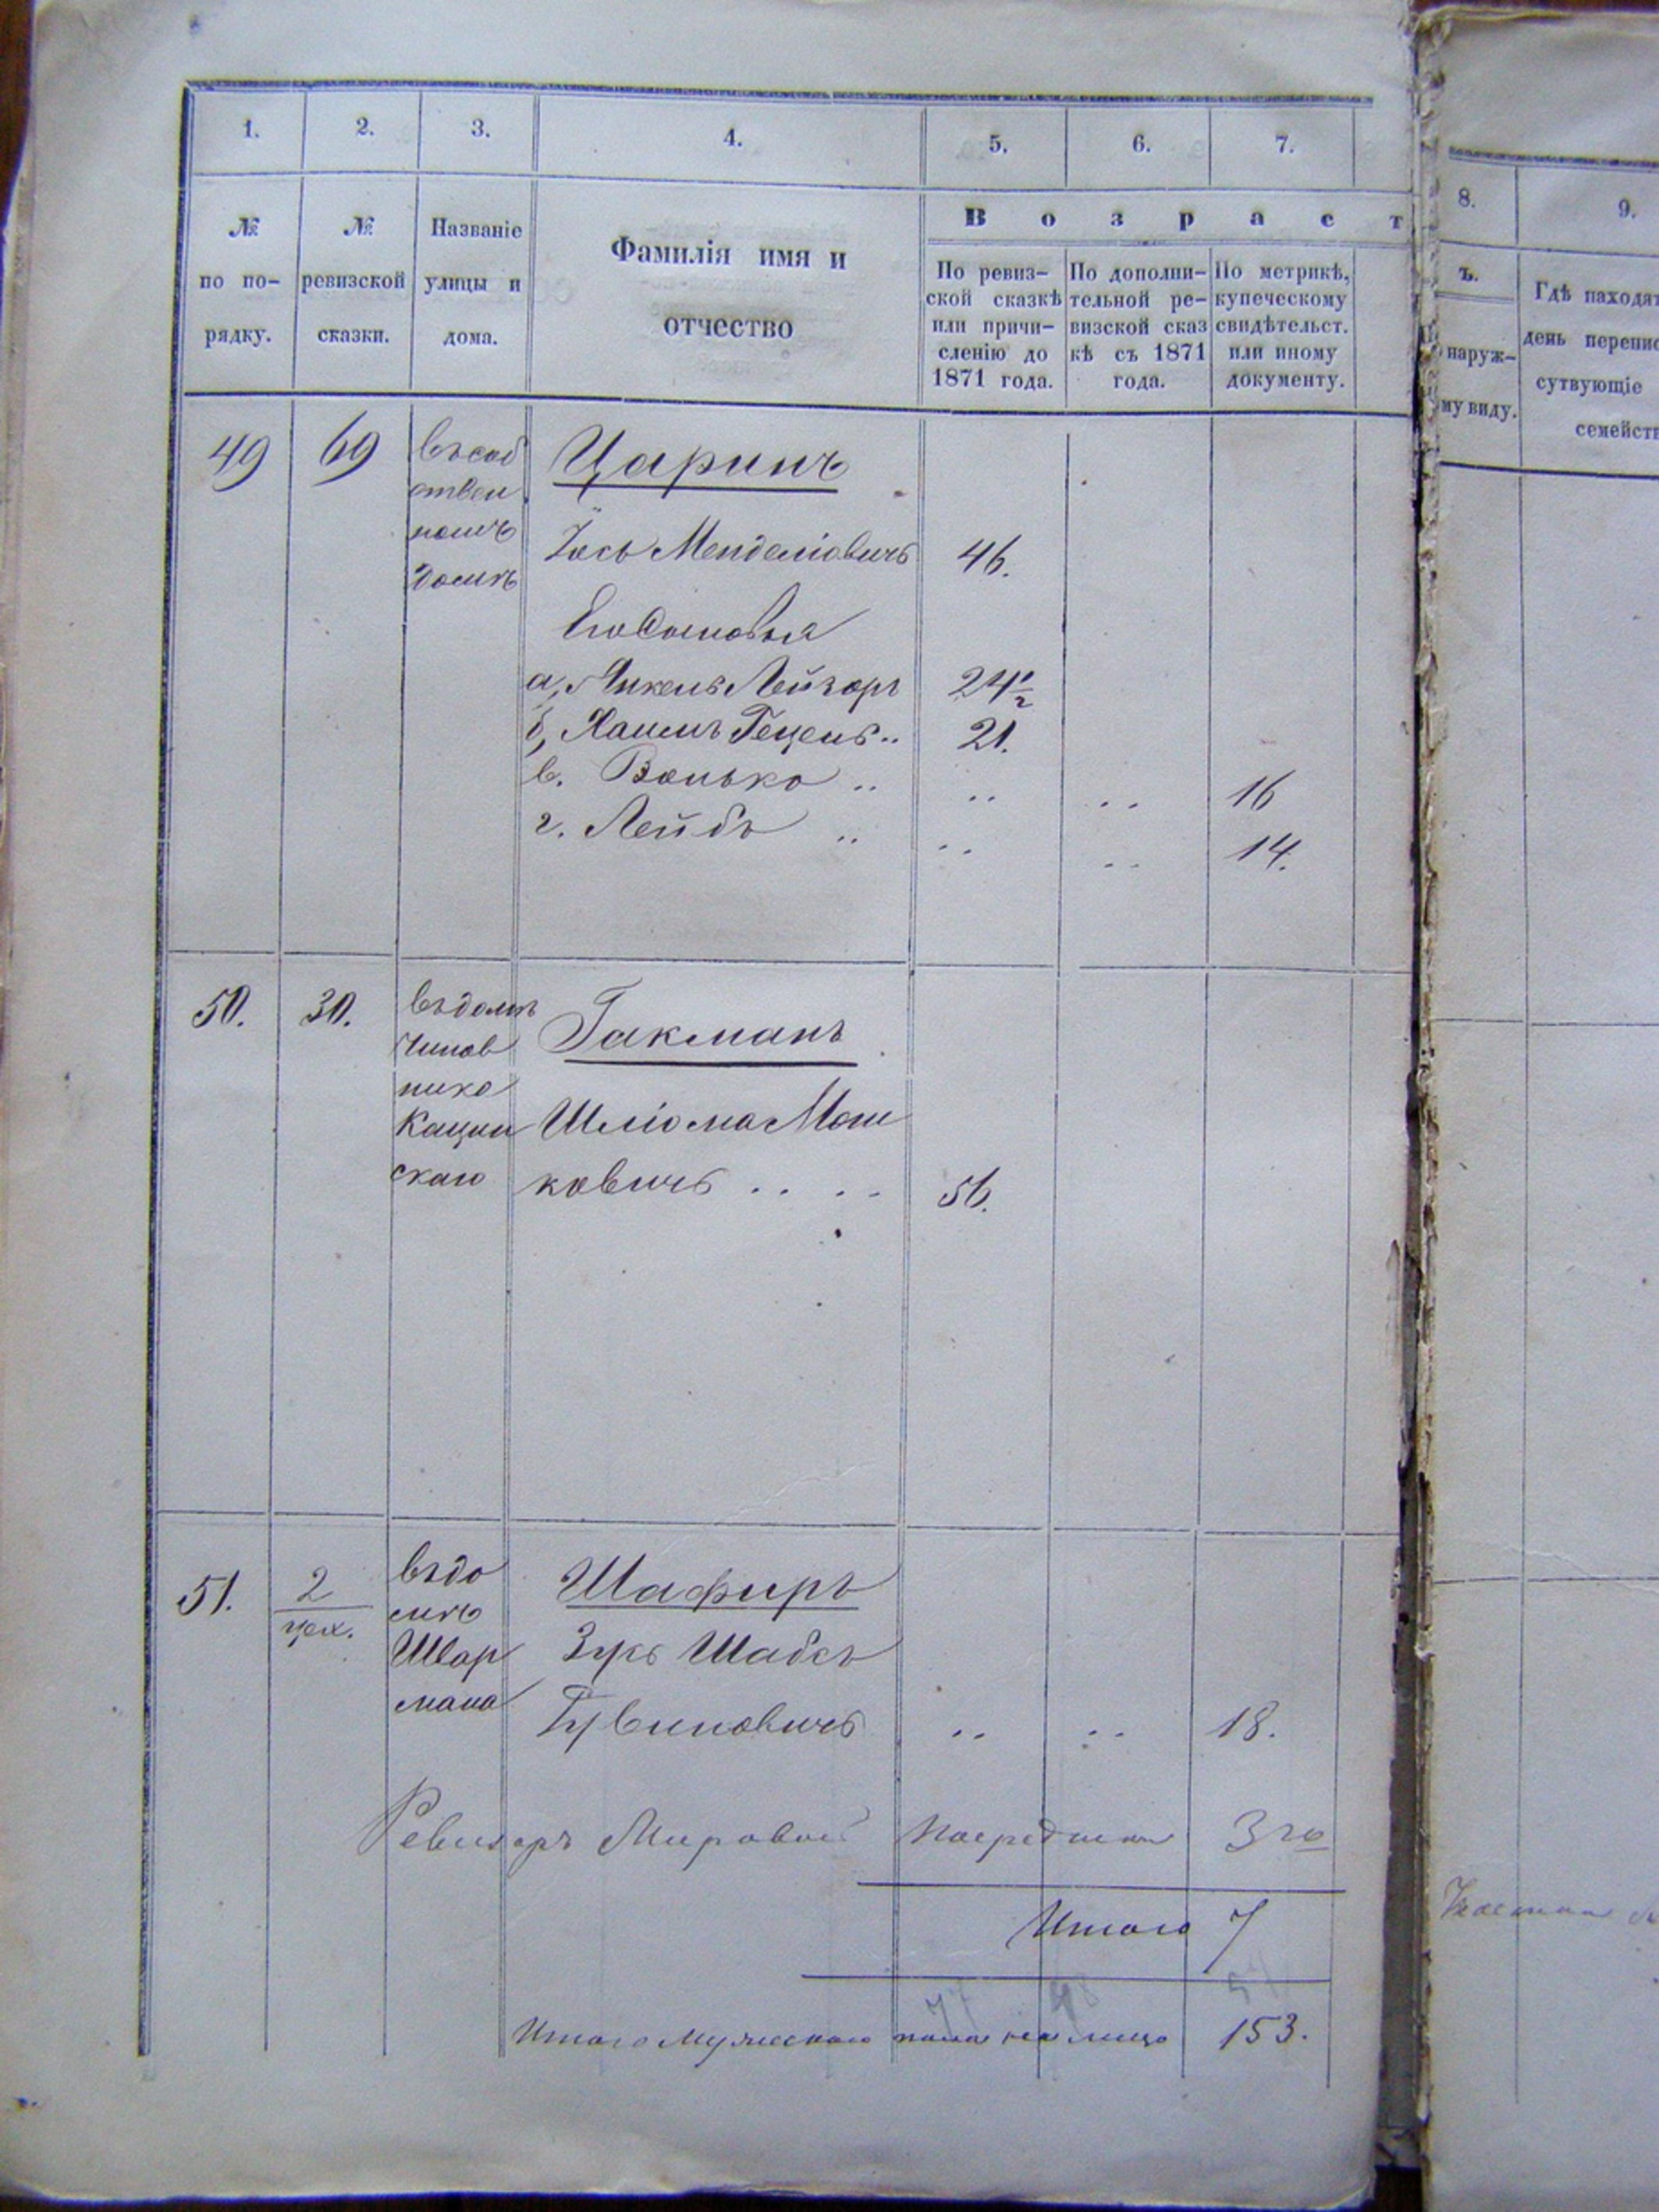 1. 2. 3. 4. 5. 6. 7.
№ по по-рядку.
№ ревизской сказки.
Названіе улицы и дома.
Фамилія имя и отчество
В о з р а с т
По ревиз-
ской сказкѣ
или причи-
сленію до
1871 года.
По дополни-
тельной ре-
визской сказ
кѣ съ 1871
года.
По метрикѣ,
купеческому
свидѣтельст.
или иному
документу.
49 69 въ соб Царинъ
ствен
номъ Іось Менделіовичъ 46.
домѣ
Его Сыновья
а, Янкель Лейзоръ 24½
б, Хаимъ Гецель .. 21.
в. Волько .. .. .. 16
г. Лейбъ .. .. .. 14.
50. 30. въ домѣ Гакманъ
чинов
ника
Кацин Шліома Мош
скаго ковичъ .. .. 56.
51. 2 въ до Шафиръ
цех. мѣ
Швар Зусь Шабсъ
мана Рувиновичъ .. .. 18.
Ревизоръ Мировой Посредникъ 3го
Итого 7
Итого Мужескаго пола на лицо 153.
8. 9.
ъ.
наруж-
му виду.
Гдѣ находят
день перепис
сутвующіе
семейств